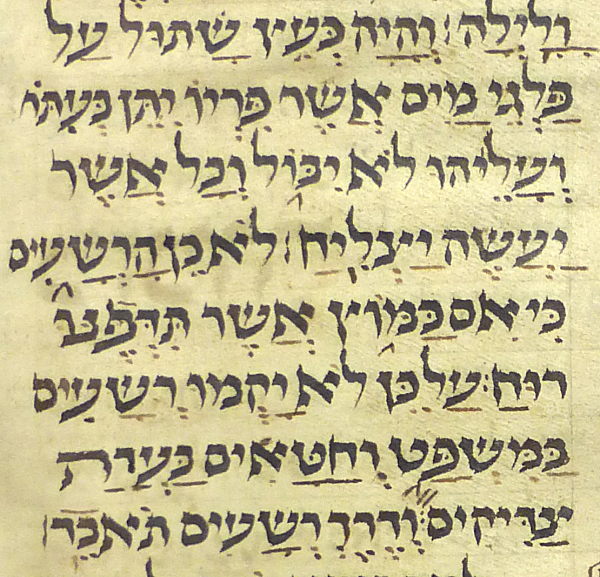 ולילה: והיה כעץ שתול על
פלגי מים אשר פריו יתן בעתו
ועליהו לא יבול וכל אשר
יעשה יצליח: לא כן הרשעים
כי אם כמוץ אשר תדפנו
רוח: על כן לא יקמו רשעים
במשפט וחטאים בעדת
צדיקים: ודרך רשעים תאבד: